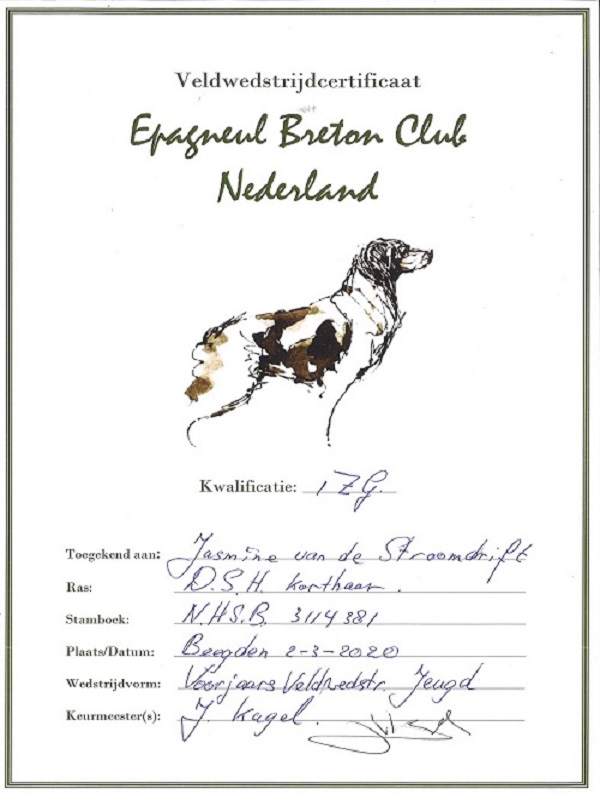 Veldwedstrijdcertificaat
Epagneul Breton Club
Nederland
Kwalificatie: 1 ZG.
Toegekend aan: Jasmine van de Stroomdrift
Ras: D.S.H. Korthaar.
Stamboek: N.H.S.B. 3114381
Plaats/Datum: Beegden 2-3-2020
Wedstrijdvorm: Voorjaars Veldwedstr. Jeugd
Keurmeester(s): J. Kagel.